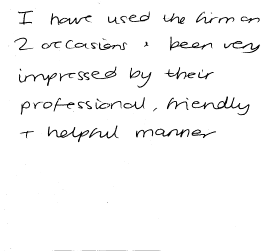 I have used the firm on
2 occasions & been very
impressed by their
professional, friendly
+ helpful manner